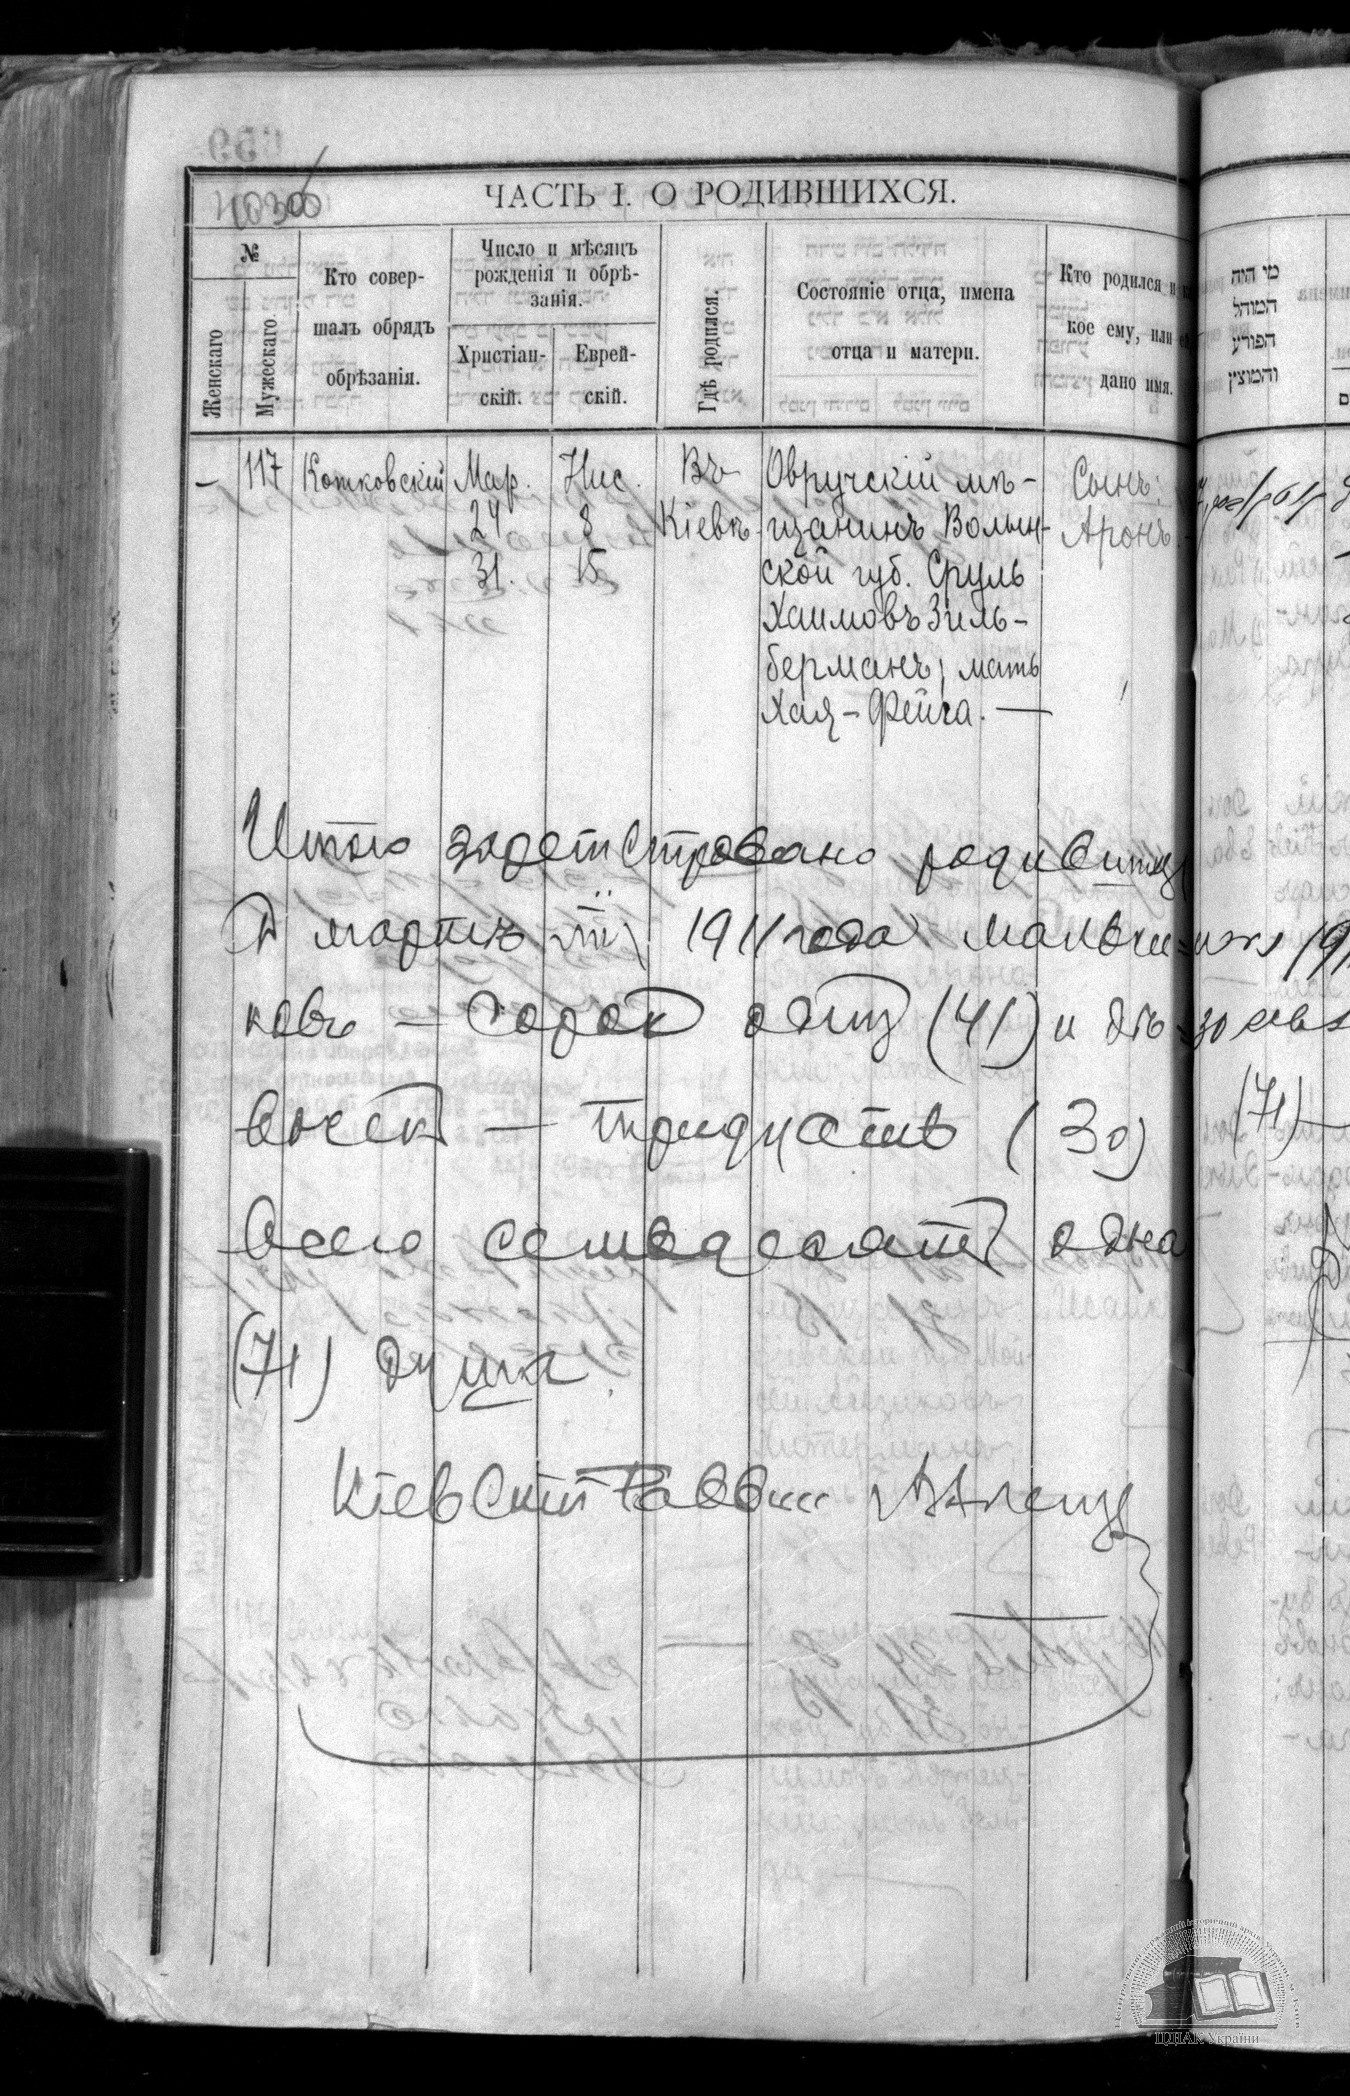 ЧАСТЬ I. О РОДИВШИХСЯ.
№
Женскаго
Мужескаго.
Кто совер-
шалъ обрядъ
обрѣзанія.
Число и мѣсяцъ
рожденія и обрѣ-
занія.
Христіан-
скій.
Еврей-
скій.
Гдѣ родился.
Состояніе отца, имена
отца и матери.
Кто родился и
кое ему, или
дано имя.
מי היה
המוהל
הפורע
והמוצץ
–
117
Котковскій
Мар.
24
31.
Нис.
8
15
Въ
Кіевѣ
Овручскій мѣ-
щанинъ Волын-
ской губ. Сруль
Хаимовъ Зиль-
берманъ, мать
Хая-Фейга. —
Сынъ:
Аронъ.
Итого зарегистровано родившихся
в мартѣ м. 1911 года мальчи-
ковъ — сорок один (41) и дѣ-
вочек — тридцать (30)
всего семьдесят одна
(71) душа.
Кіевскій Раввин
(71) —
ЦДІАК України